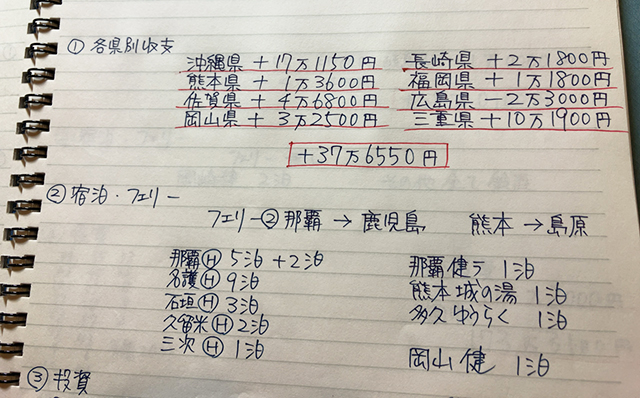 ① 各県別収支
沖縄県 + 17万1150円 長崎県 + 2万1800円
熊本県 + 1万3600円 福岡県 + 1万1800円
佐賀県 + 4万6800円 広島県 - 2万3000円
岡山県 + 3万2500円 三重県 + 10万1900円
+37万6550円
② 宿泊・フェリー
フェリー② 那覇 → 鹿児島 熊本 → 島原
那覇Ⓗ 5泊 +2泊 那覇健ラ 1泊
名護Ⓗ 9泊 熊本城の湯 1泊
石垣Ⓗ 3泊 多久ゆうらく 1泊
久留米Ⓗ 2泊
三次Ⓗ 1泊 岡山健 1泊
③ 投資